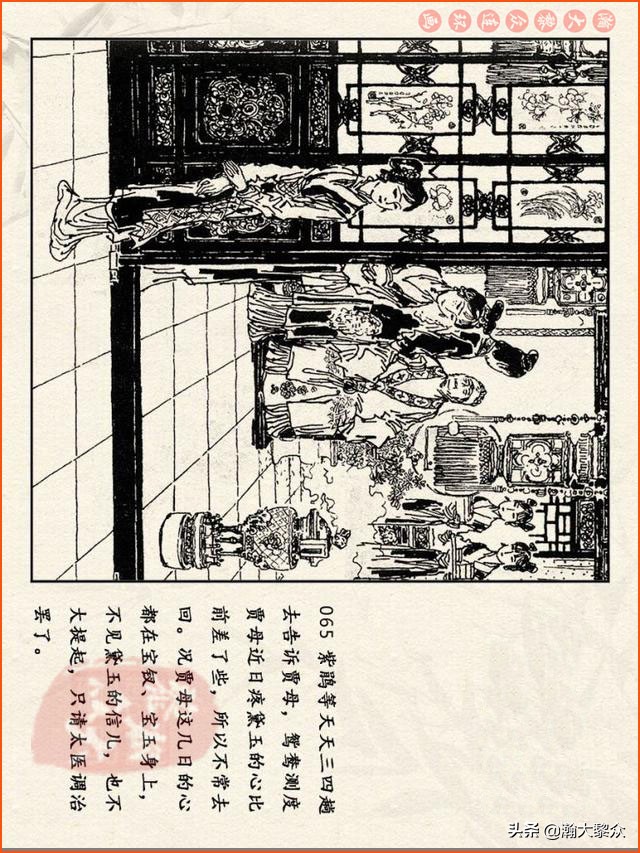 瀚大黎众连环画
065 紫鹃等天天三四趟
去告诉贾母，鸳鸯测度
贾母近日疼黛玉的心比
前差了些，所以不常去
回。况贾母这几日的心
都在宝钗、宝玉身上，
不见黛玉的信儿，也不
大提起，只请太医调治
罢了。
头条 @瀚大黎众